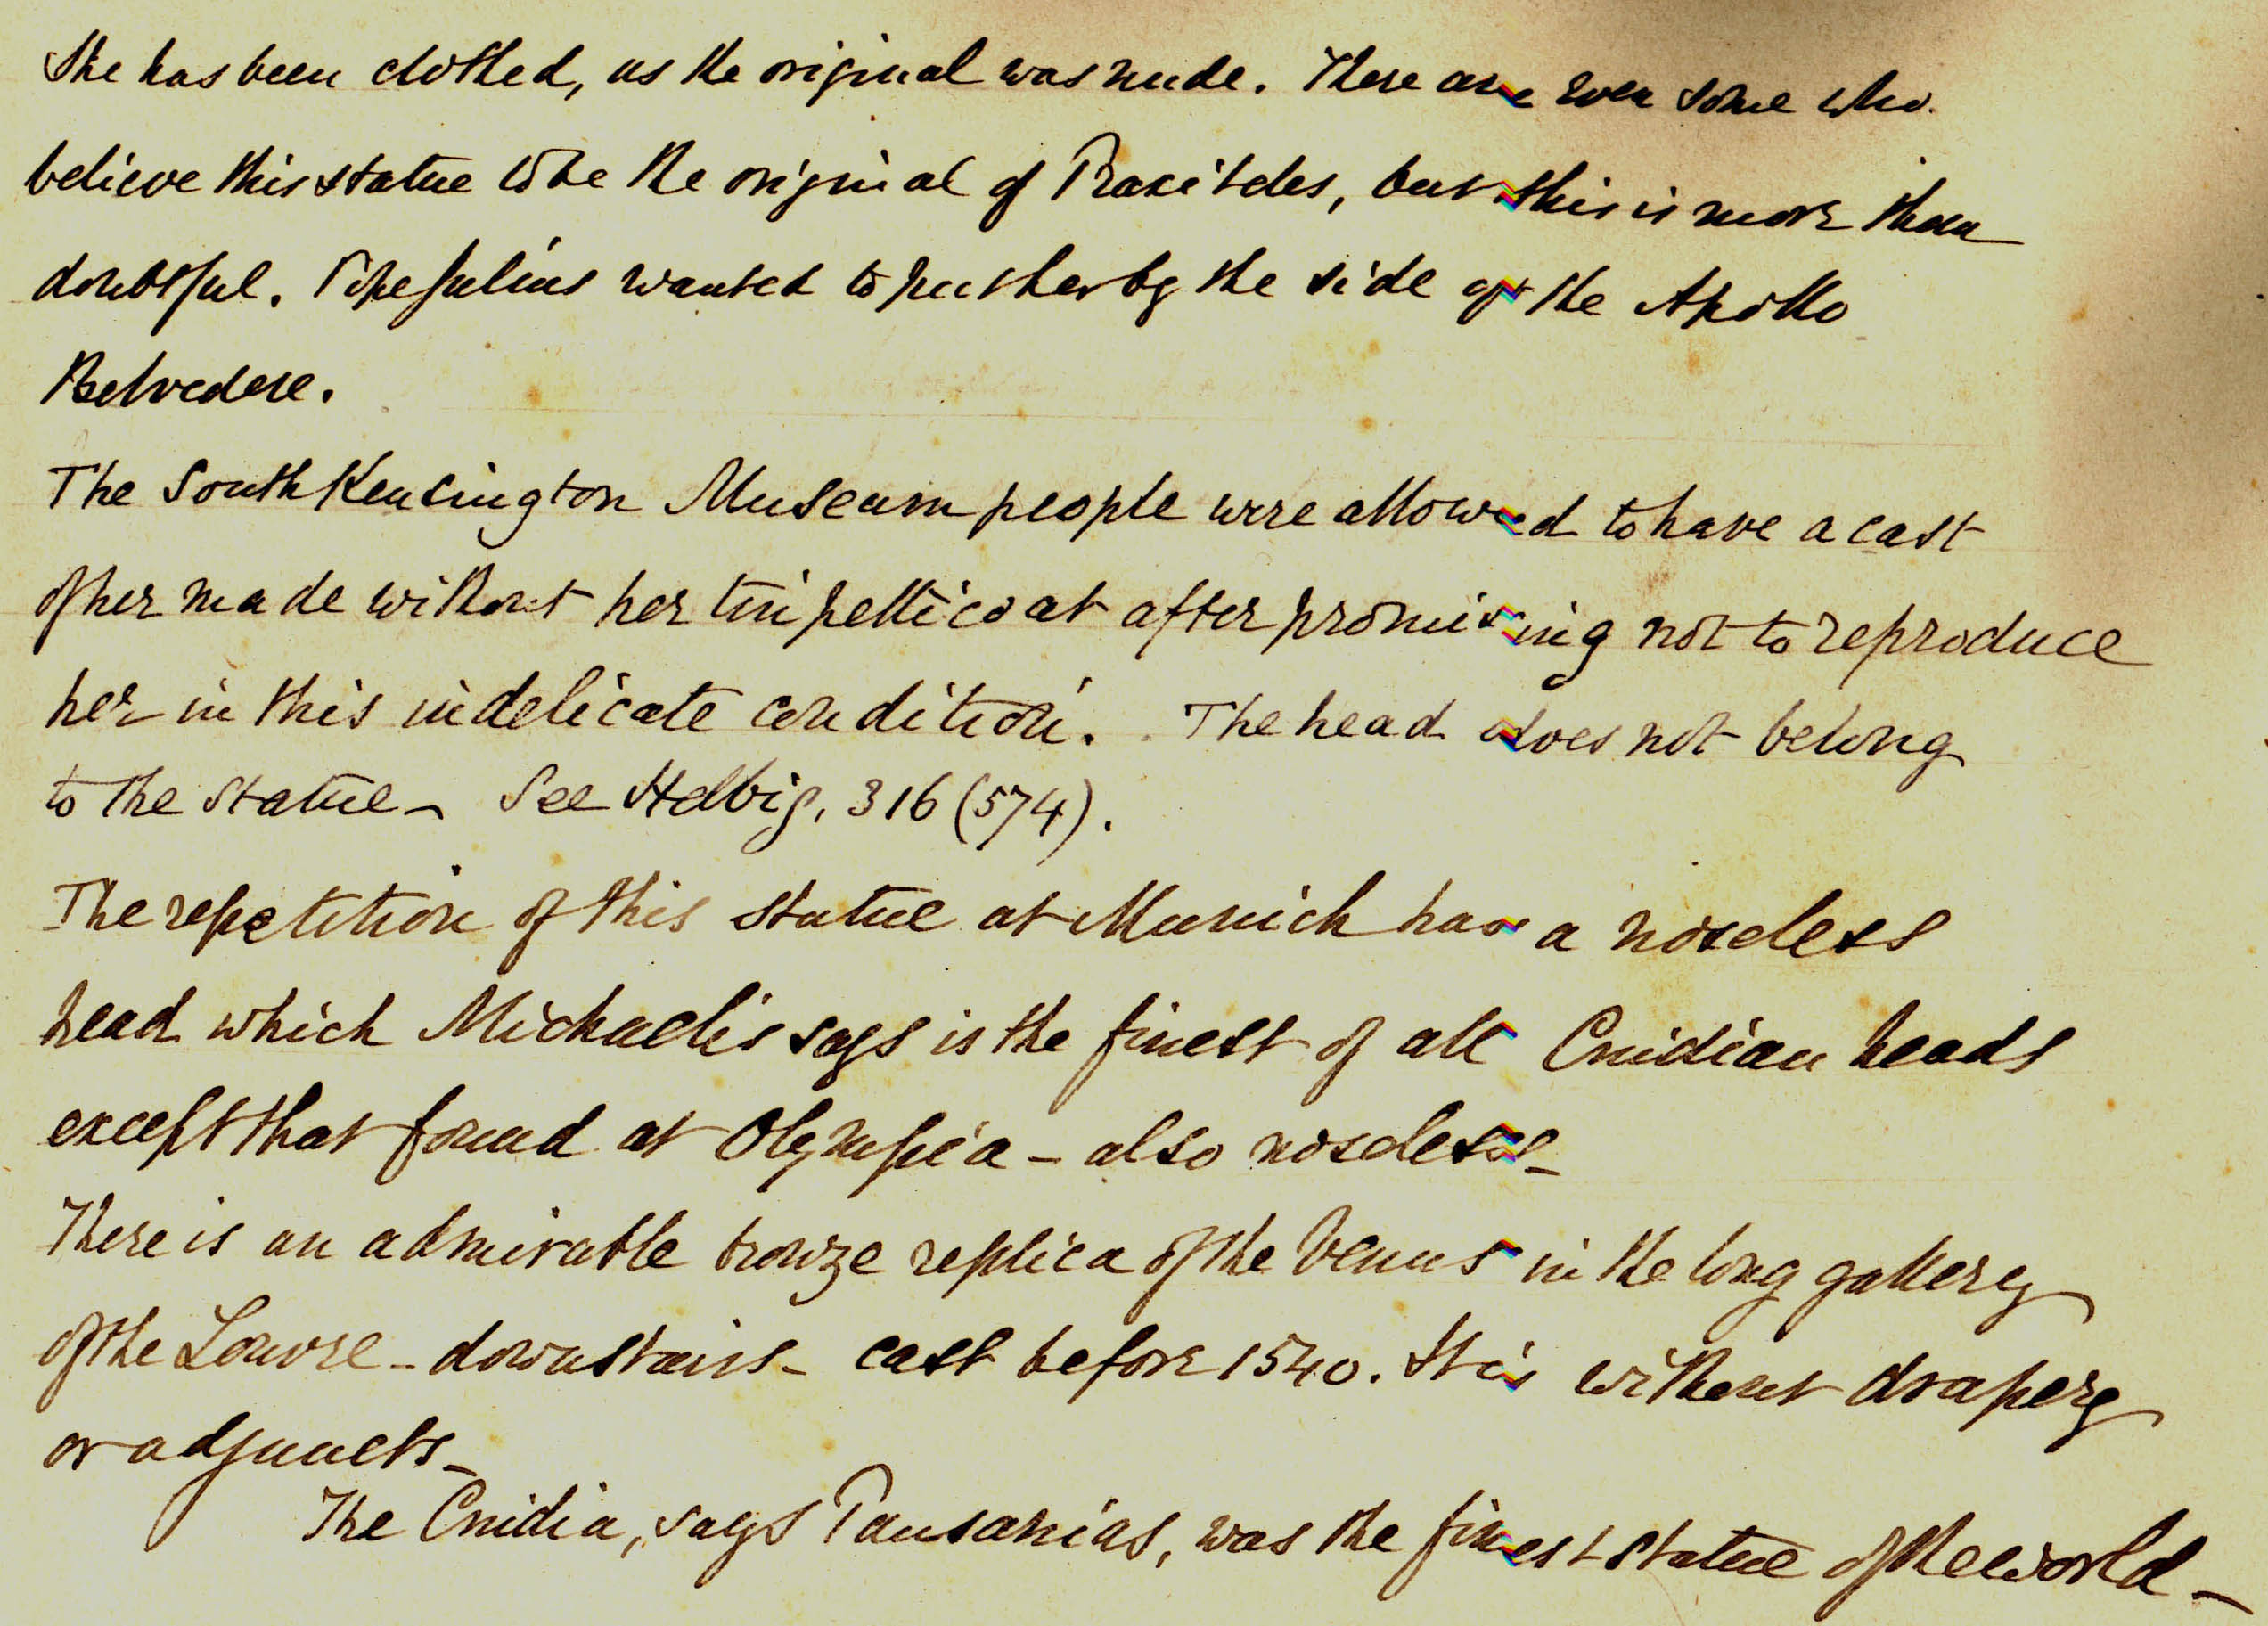 She has been clothed, as the original was nude. There are even some who
believe this statue to be the original of Praxiteles, but this is more than
doubtful. Pope Julius wanted to put her by the side of the Apollo
Belvedere.
The South Kensington Museum people were allowed to have a cast
of her made without her tin petticoat after promising not to reproduce
her in this indelicate condition. The head does not belong
to the statue - See Helbig, 316 (574).
The repetition of this statue at Munich has a noseless
head which Michaelis says is the finest of all Cnidian heads
except that found at Olympia - also noseless -
There is an admirable bronze replica of the Venus in the long gallery
of the Louvre - downstairs - cast before 1540. It is without drapery
or adjuncts -
The Cnidia, says Pausanias, was the finest statue of the world -